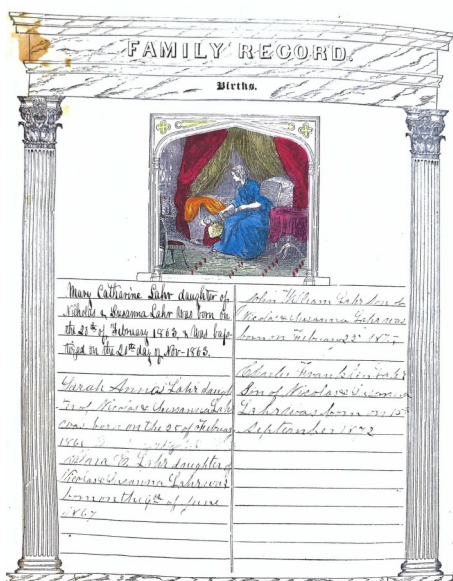 FAMILY RECORD.
Births.
Mary Catharine Lahr daughter of
Nicholas & Susanna Lahr was born on
the 20th of February 1863, & was bap-
tized on the 20th day of Nov- 1863.
Sarah Anna Lahr daugh
ter of Nicolas & Susanna Lahr
was born on the 25 of Februay
E Lahr daughter of
Nicolas & Susanna Lahr was
born on the 9th of June
1867
John William Lahr Son of
Nicolas & Susanna Lahr was
born on Februay 22
Charles Franklin Lahr
Son of Nicolas & Susanna
Lahr was born on 15
September 1872